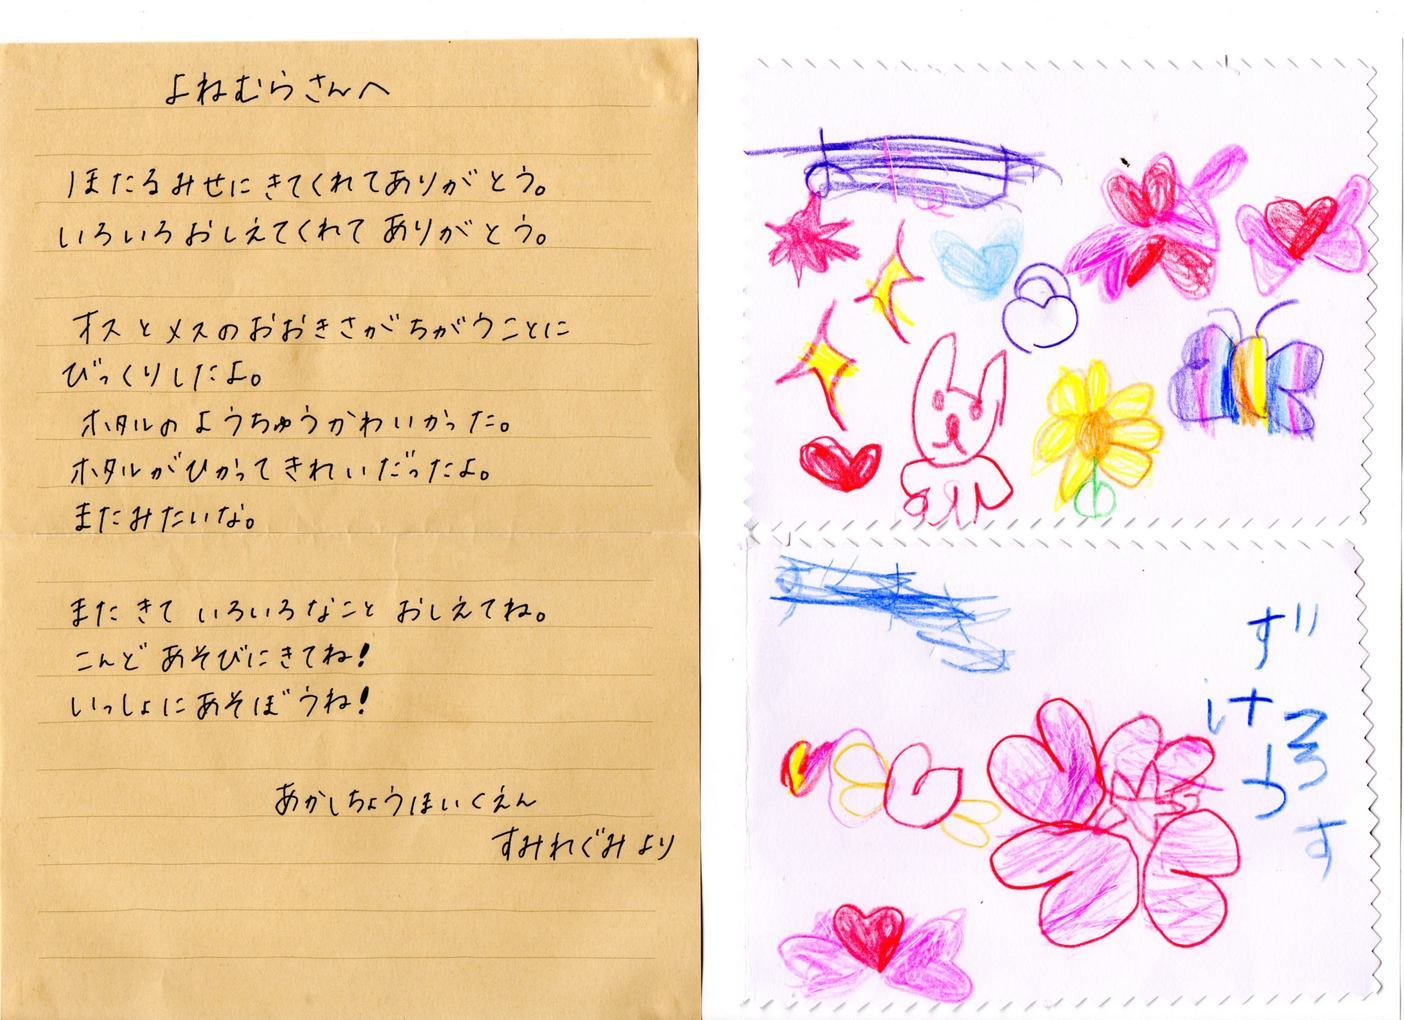 よねむらさんへ
ほたるみせにきてくれてありがとう。
いろいろおしえてくれてありがとう。
オスとメスのおおきさがちがうことに
びっくりしたよ。
ホタルのようちゅうかわいかった。
ホタルがひかってきれいだったよ。
またみたいな。
またきていろいろなことおしえてね。
こんどあそびにきてね!
いっしょにあそぼうね!
あかしちょうほいくえん
すみれぐみより